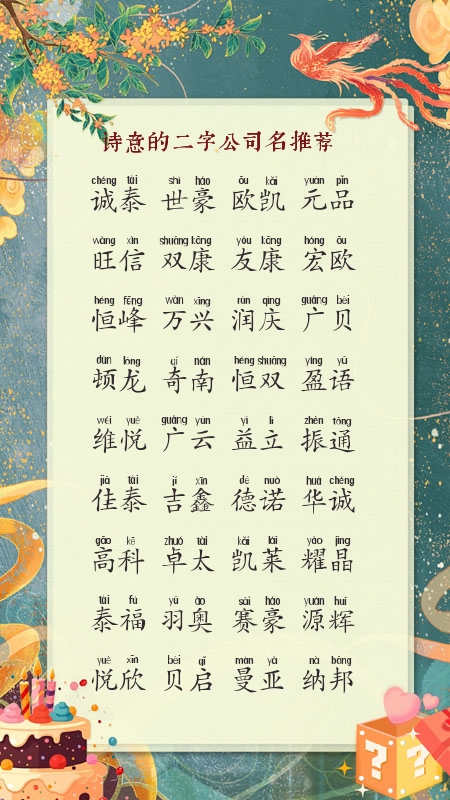 诗意的二字公司名推荐
chéng tài shì háo ōu kǎi yuán pǐn
诚泰 世豪 欧凯 元品
wàng xìn shuāng kāng yǒu kāng hóng ōu
旺信 双康 友康 宏欧
héng fēng wàn xīng rùn qìng guǎng bèi
恒峰 万兴 润庆 广贝
dùn lóng qí nán héng shuāng yíng yǔ
顿龙 奇南 恒双 盈语
wéi yuè guǎng yún yì lì zhèn tōng
维悦 广云 益立 振通
jiā tài jí xīn dé nuò huá chéng
佳泰 吉鑫 德诺 华诚
gāo kē zhuó tài kǎi lái yào jīng
高科 卓太 凯莱 耀晶
tài fú yǔ ào sài háo yuán huī
泰福 羽奥 赛豪 源辉
yuè xīn bèi qǐ màn yà nà bāng
悦欣 贝启 曼亚 纳邦